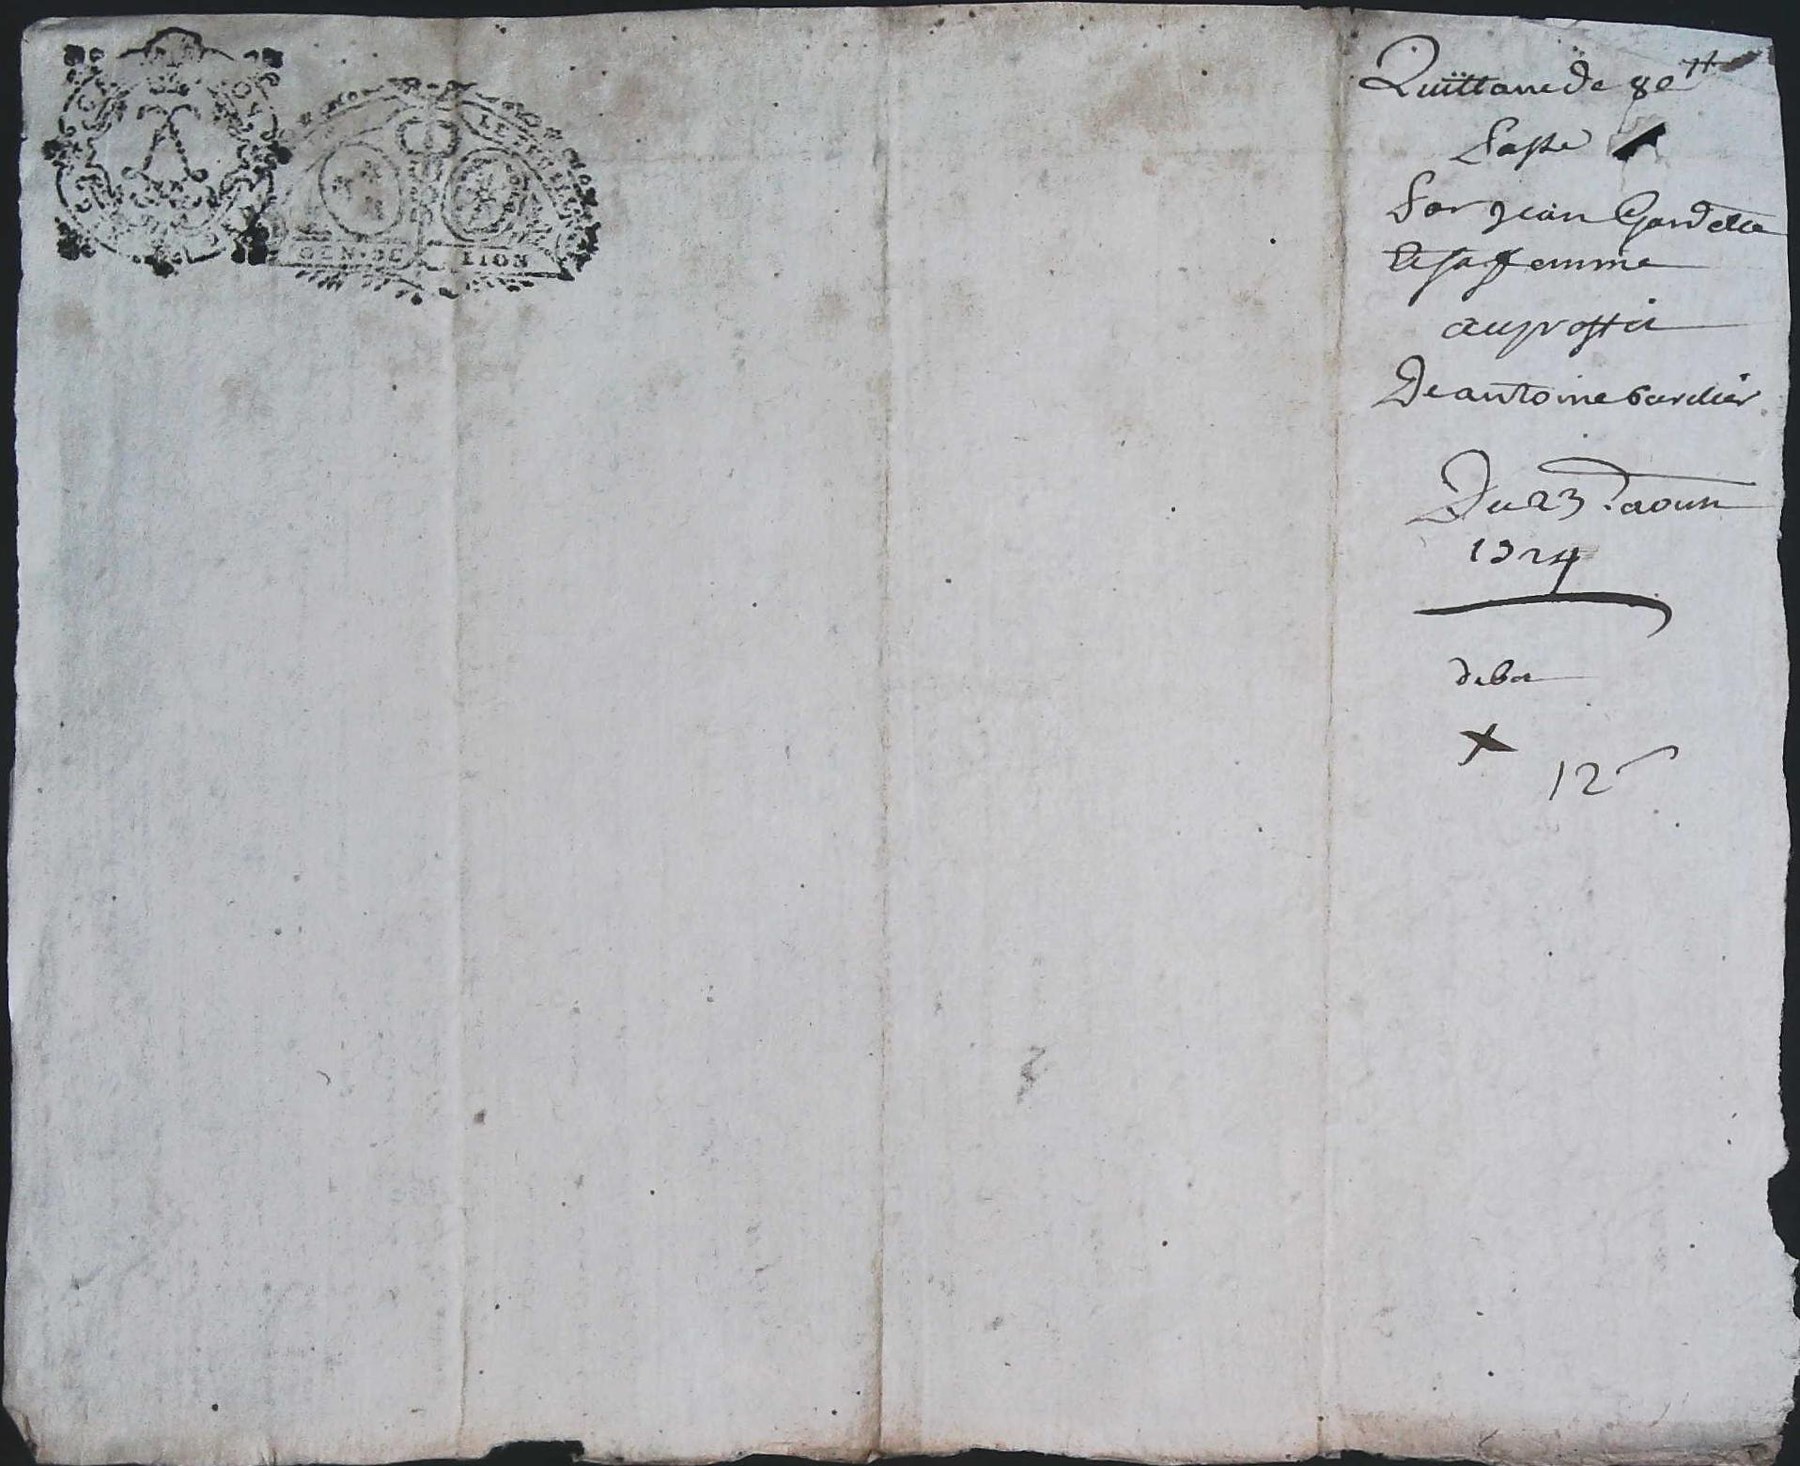 GEN·DE LION
Quittance de 80 tt
Passé
Par Jean Gardette
Et sa femme
au proffit
De antoine bardier
Du 23 aoust
1724
deba
x
12